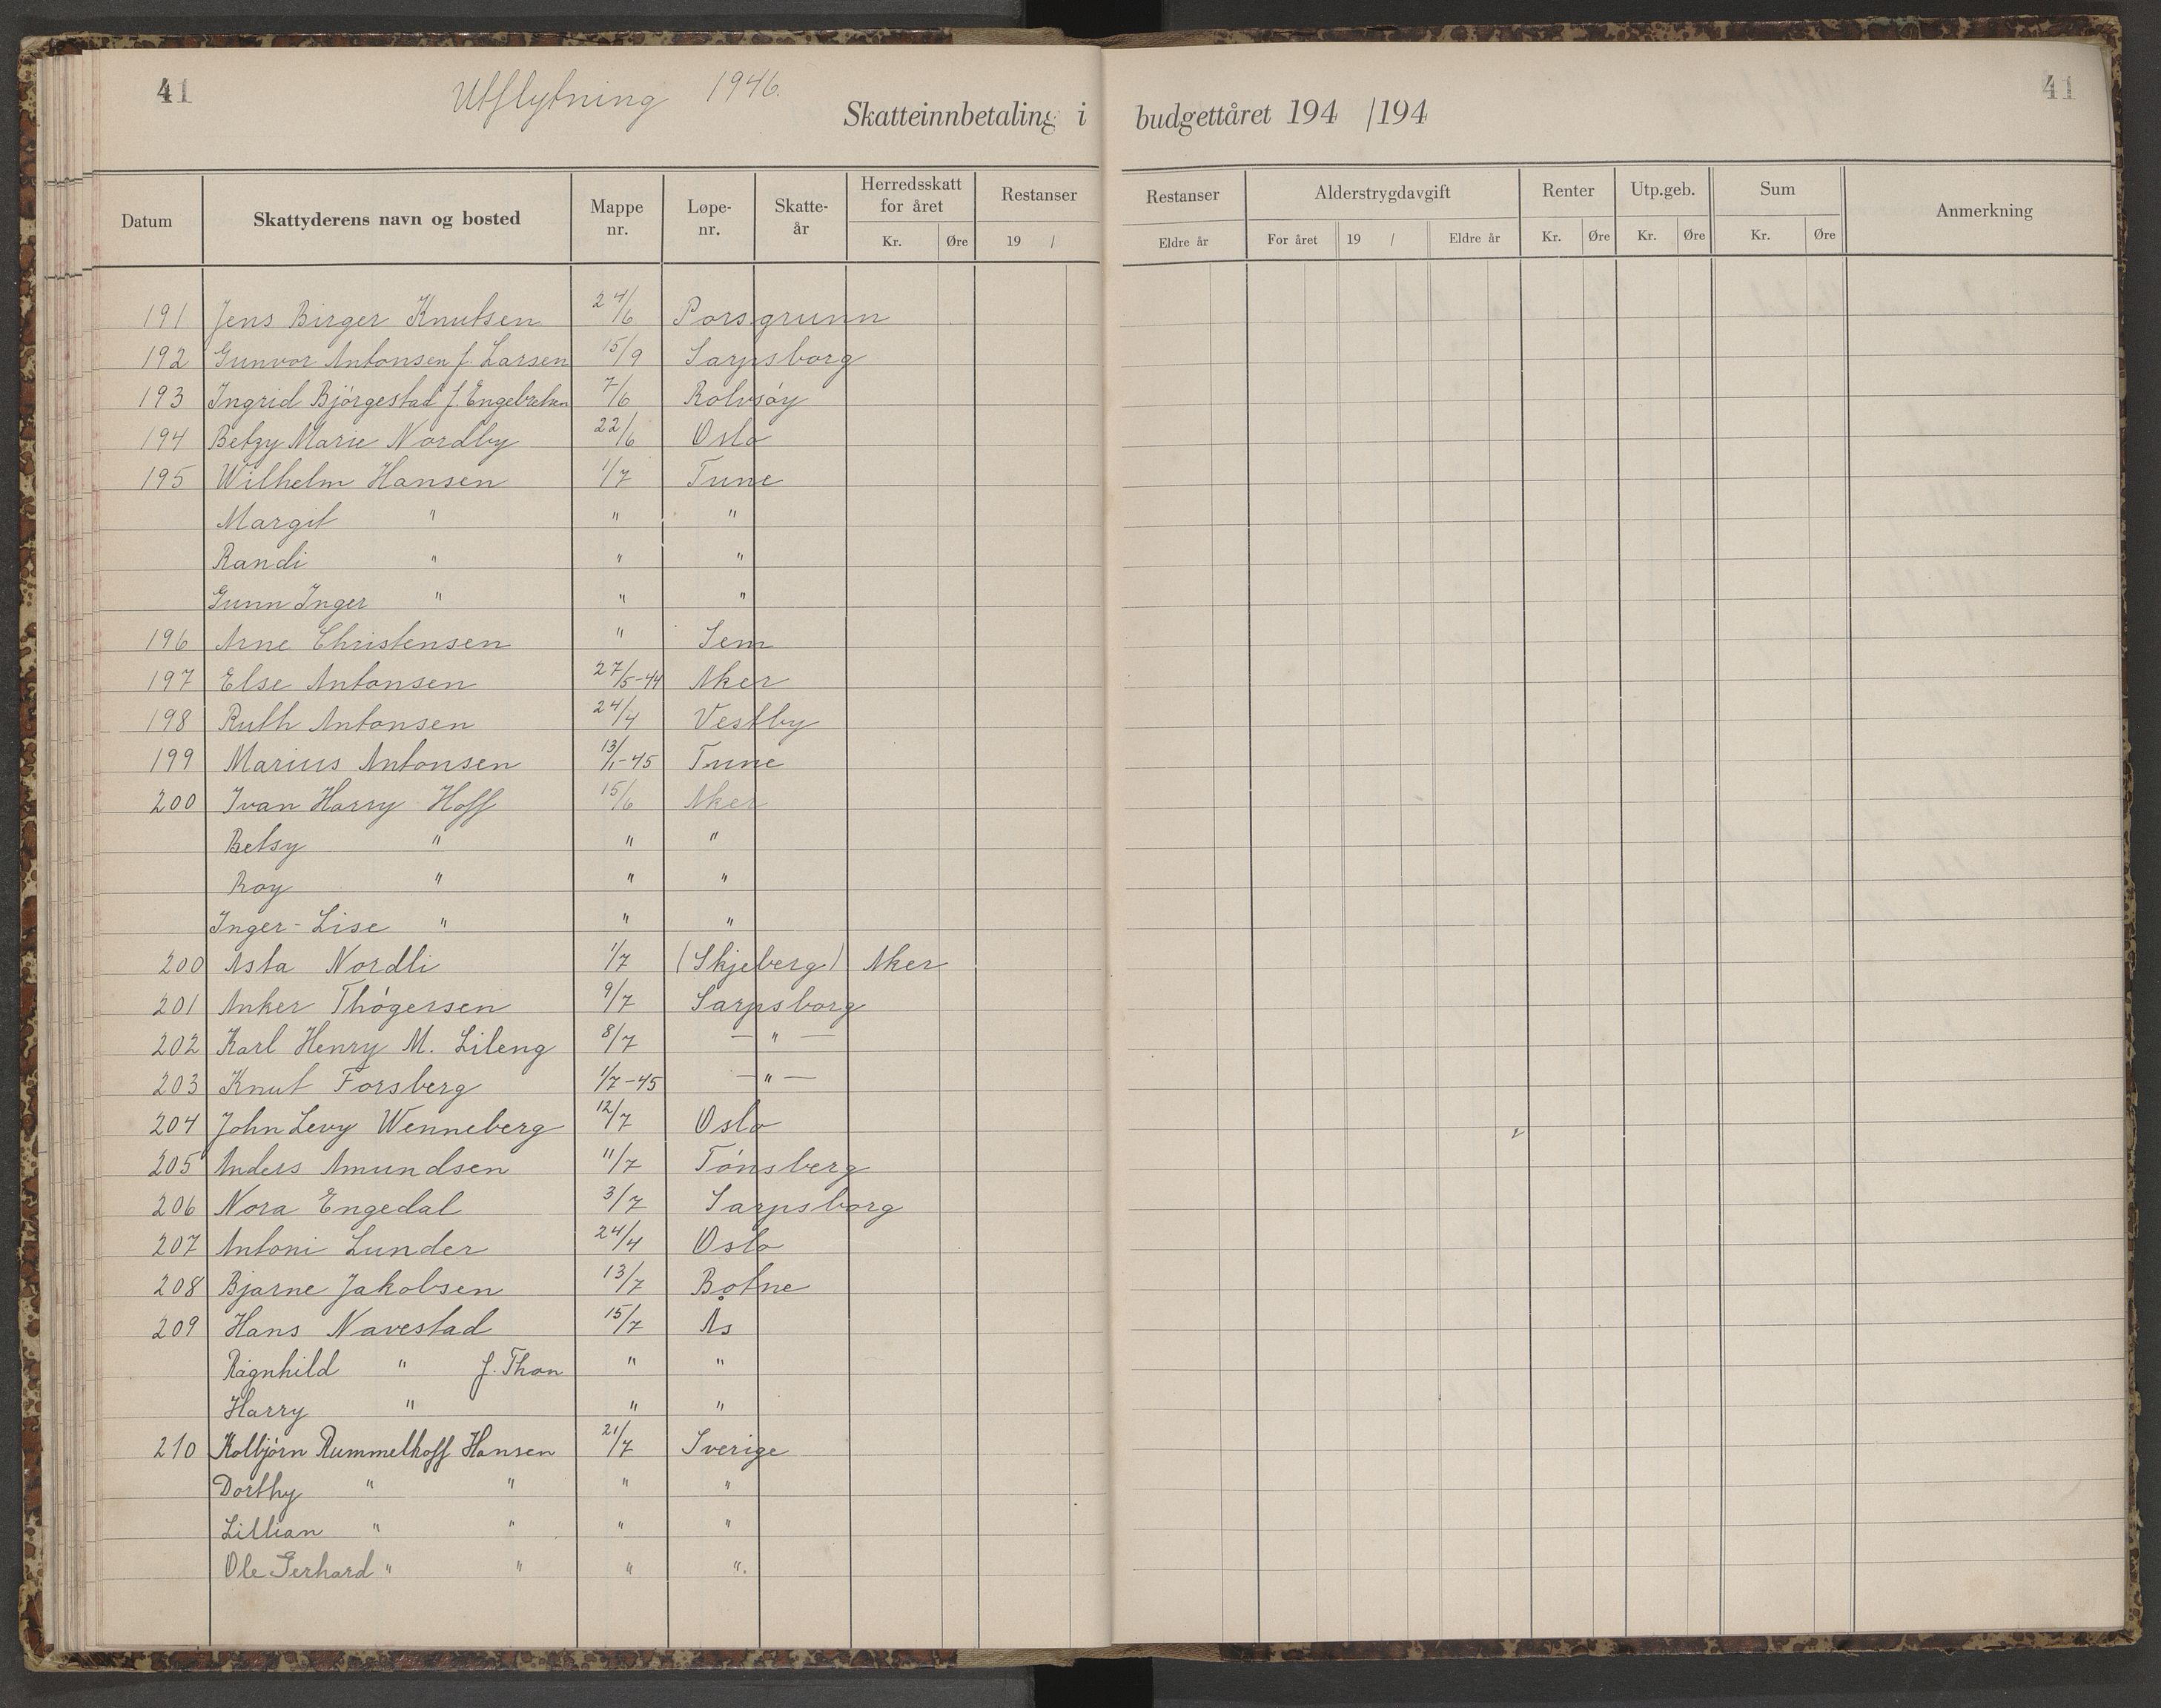 41 Utflytning 1946. 41
Skatteinnbetaling i budgettåret 194 /194
Datum Skattyderens navn og bosted Mappe nr. Løpe-nr. Skatte-år Herredsskatt for året Kr. Øre Restanser 19 / Restanser Eldre år Alderstrygdavgift For året 19 / Eldre år Renter Kr. Øre Utp.geb. Kr. Øre Sum Kr. Øre Anmerkning
191 Jens Birger Knutsen 24/6 Porsgrunn
192 Gunvor Antonsen f. Larsen 15/9 Sarpsborg
193 Ingrid Bjørgestad f. Engebretsen 7/6 Rolvsøy
194 Betzy Marie Nordby 22/6 Oslo
195 Wilhelm Hansen 1/7 Tune
Margit " " "
Randi " " "
Gunn Inger " " "
196 Arne Christensen " Sem
197 Else Antonsen 27/5-44 Aker
198 Ruth Antonsen 24/4 Vestby
199 Marius Antonsen 13/1-45 Tune
200 Ivan Harry Hoff 15/6 Aker
Betsy " " "
Roy " " "
Inger-Lise " " "
200 Asta Nordli 1/7 (Skjeberg) Aker
201 Anker Thøgersen 9/7 Sarpsborg
202 Karl Henry M. Lileng 8/7 — " —
203 Knut Forsberg 1/7-45 — " —
204 John Levy Wenneberg 12/7 Oslo
205 Anders Amundsen 11/7 Tønsberg
206 Nora Engedal 3/7 Sarpsborg
207 Antoni Lunder 24/4 Oslo
208 Bjarne Jakobsen 13/7 Botne
209 Hans Navestad 15/7 Ås
Ragnhild " f. Thon " "
Harry " " "
210 Kolbjørn Rummelhoff Hansen 21/7 Sverige
Dorthy " " " "
Lillian " " " "
Ole Gerhard " " " ".